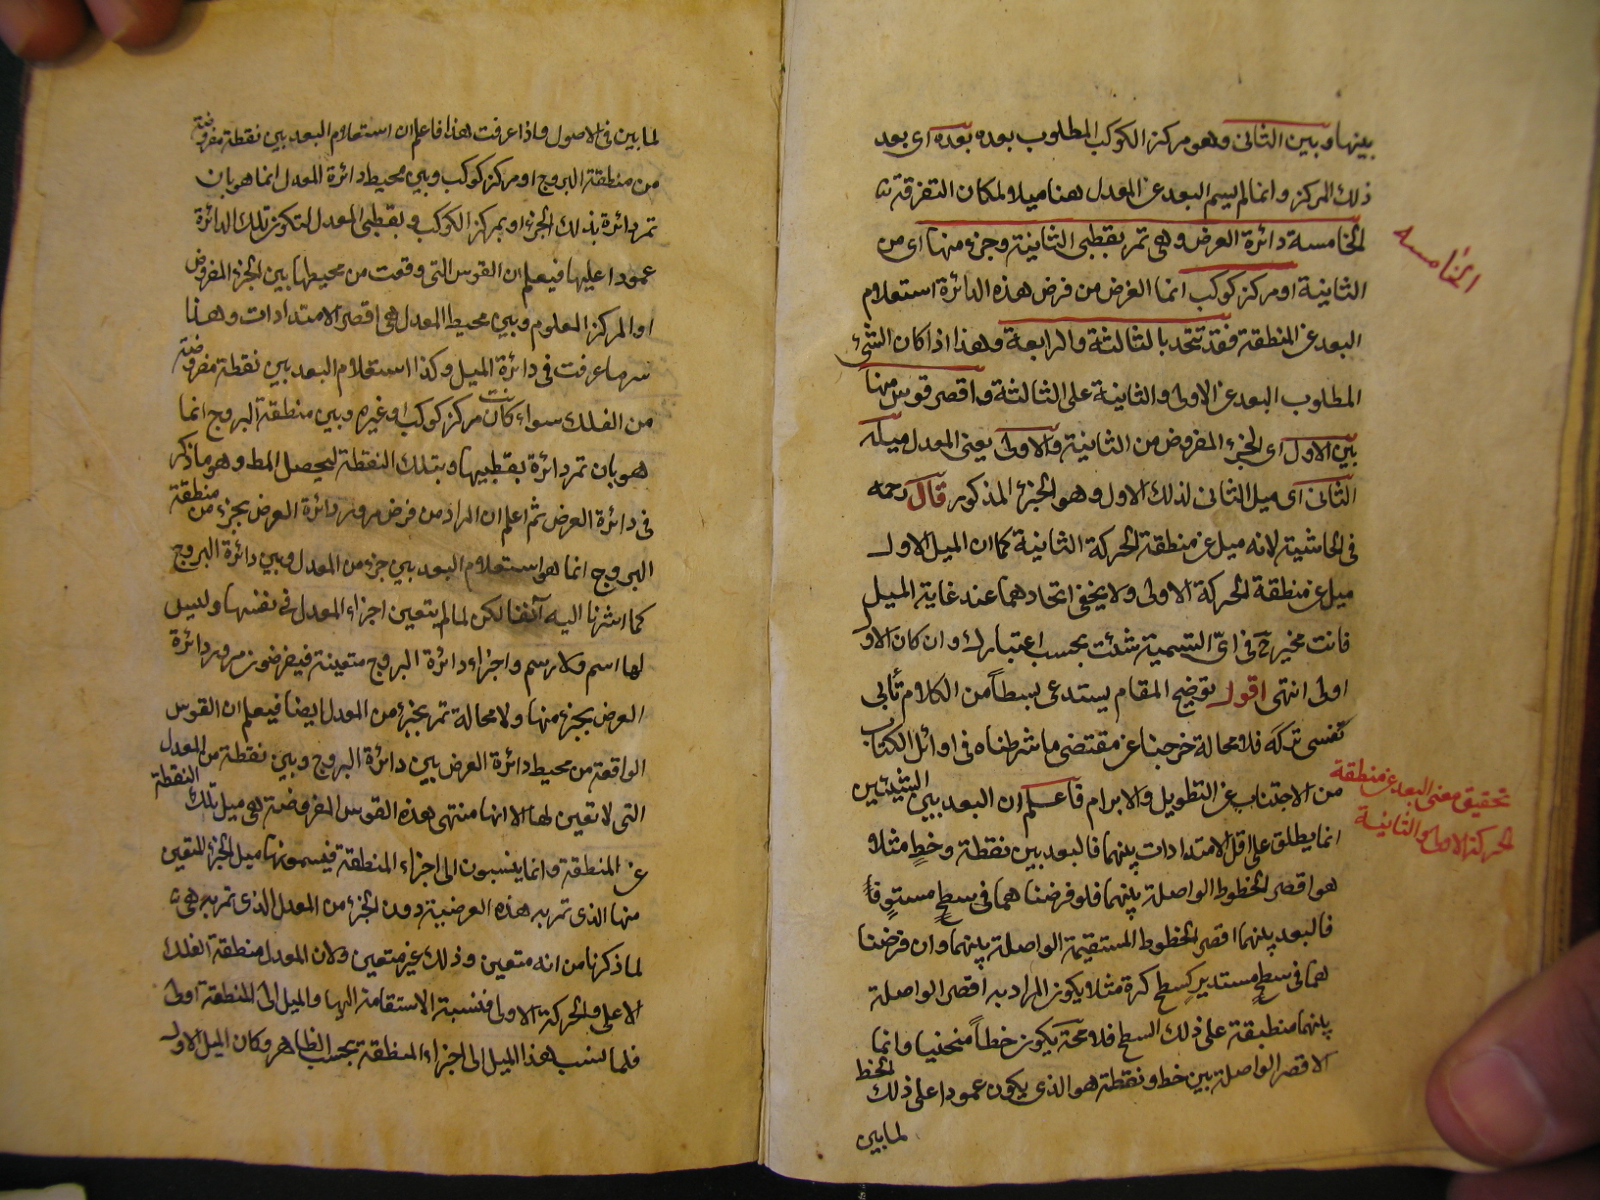 بينها وبين الثانى وهو مركز الكوكب المطلوب بعده بعده اى بعد
ذلك المركز وانما لم يسم البعد عن المعدل هنا ميلا لمكان التفرقة
الخامسة دائرة العرض وهى تمر بقطبى الثانية وجزء منها اى من
الخامسه
الثانية او مركز كوكب انما الغرض من فرض هذه الدائرة استعلام
البعد عن المنطقة فقد تتحد بالثالثة والرابعة وهذا اذا كان الشئ
المطلوب البعد عن الاولى والثانية على الثالثة واقصر قوس منها
بين الاول اى الجزء المفروض من الثانية والاولى يعنى المعدل ميله
الثانى اى ميل الثانى لذلك الاول وهو الجزء المذكور قال رحمه
فى الحاشية لانه ميل عن منطقة الحركة الثانية كما ان الميل الاول
ميل عن منطقة الحركة الاولى ولا يخفى اتحادهما عند غاية الميل
فانت مخير ح فى اى التسمية شئت بحسب اعتبارك وان كان الاول
اولى انتهى اقول توضيح المقام يستدعى بسطاً من الكلام تأبى
نفسى تركه فلا محالة خرجنا عن مقتضى ما شرطناه فى اوائل الكتاب
من الاجتناب عن التطويل والابرام فاعلم ان البعد بين الشيئين
تحقيق معنى البعد عن منطقة
الحركة الاولى والثانية
انما يطلق على اقل الامتدادات بينهما فالبعد بين نقطة وخط مثلا
هو اقصر الخطوط الواصلة بينهما فلو فرضنا هما فى سطح مستو
فالبعد بينهما اقصر الخطوط المستقيمة الواصلة بينهما وان فرضنا
هما فى سطح مستدير كسطح كرة مثلا يكون المراد به اقصر الواصلة
بينهما منطبقة على ذلك السطح فلا محة يكون خطاً منحنيا وانما
الاقصر الواصلة بين خط ونقطة هو الذى يكون عمودا على ذلك الخط
لما بين
لما بين فى الاصول واذا عرفت هذا فاعلم ان استعلام البعد بين نقطة مفروضة
من منطقة البروج او مركز كوكب وبين محيط دائرة المعدل انما هو بان
تمر دائرة بذلك الجزء او بمركز الكوكب وبقطبى المعدل لتكون تلك الدائرة
عمودا عليها فيعلم ان القوس التى وقعت من محيطها بين الجزء المفروض
او المركز المعلوم وبين محيط المعدل هى اقصر الامتدادات وهذا
عرفت فى دائرة الميل وكذا استعلام البعد بين نقطة مفروضة
من الفلك سواء كانت مركز كوكب او غيره وبين منطقة البروج انما
هو بان تمر دائرة بقطبيها وبتلك النقطة ليحصل المط وهو ما ذكر
فى دائرة العرض ثم اعلم ان المراد من فرض مرور دائرة العرض بجزء من منطقة
البروج انما هو استعلام البعد بين جزء من المعدل وبين دائرة البروج
كما اشرنا اليه آنفا لكن لما لم يتعين اجزاء المعدل فى نفسها وليس
لها اسم ولا رسم واجزاء دائرة البروج متعينة فيفرضون مرور دائرة
العرض بجزء منها ولا محالة تمر بجزء من المعدل ايضا فيعلم ان القوس
الواقعة من محيط دائرة العرض بين دائرة البروج وبين نقطة من المعدل
التى لا تعين لها الا انها منتهى هذه القوس المفروضة هى ميل تلك النقطة
عن المنطقة وانما ينسبون الى اجزاء المنطقة فيسمونها ميل الجزء المتعين
منها الذى تمر به هذه العرضية دون الجزء من المعدل الذى تمر به هى
لما ذكرنا من انه متعين وذلك غير متعين ولان المعدل منطقة الفلك
الاعلى والحركة الاولى فنسبة الاستقامة اليها والميل الى المنطقة اولى
فلما نسب هذا الميل الى اجزاء المنطقة بحسب الظاهر وكان الميل الاول